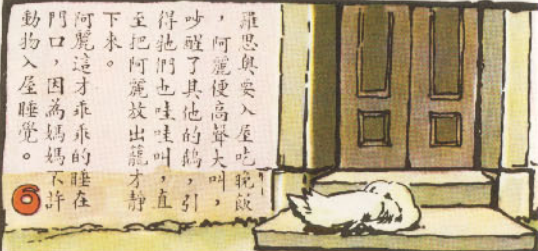 羅思奧要入屋吃晚飯
，阿麗便高聲大叫，
吵醒了其他的鵝，引
得牠們也哇哇叫，直
至把阿麗放出籠才靜
下來。
阿麗這才乖乖的睡在
門口，因為媽媽不許
動物入屋睡覺。
6